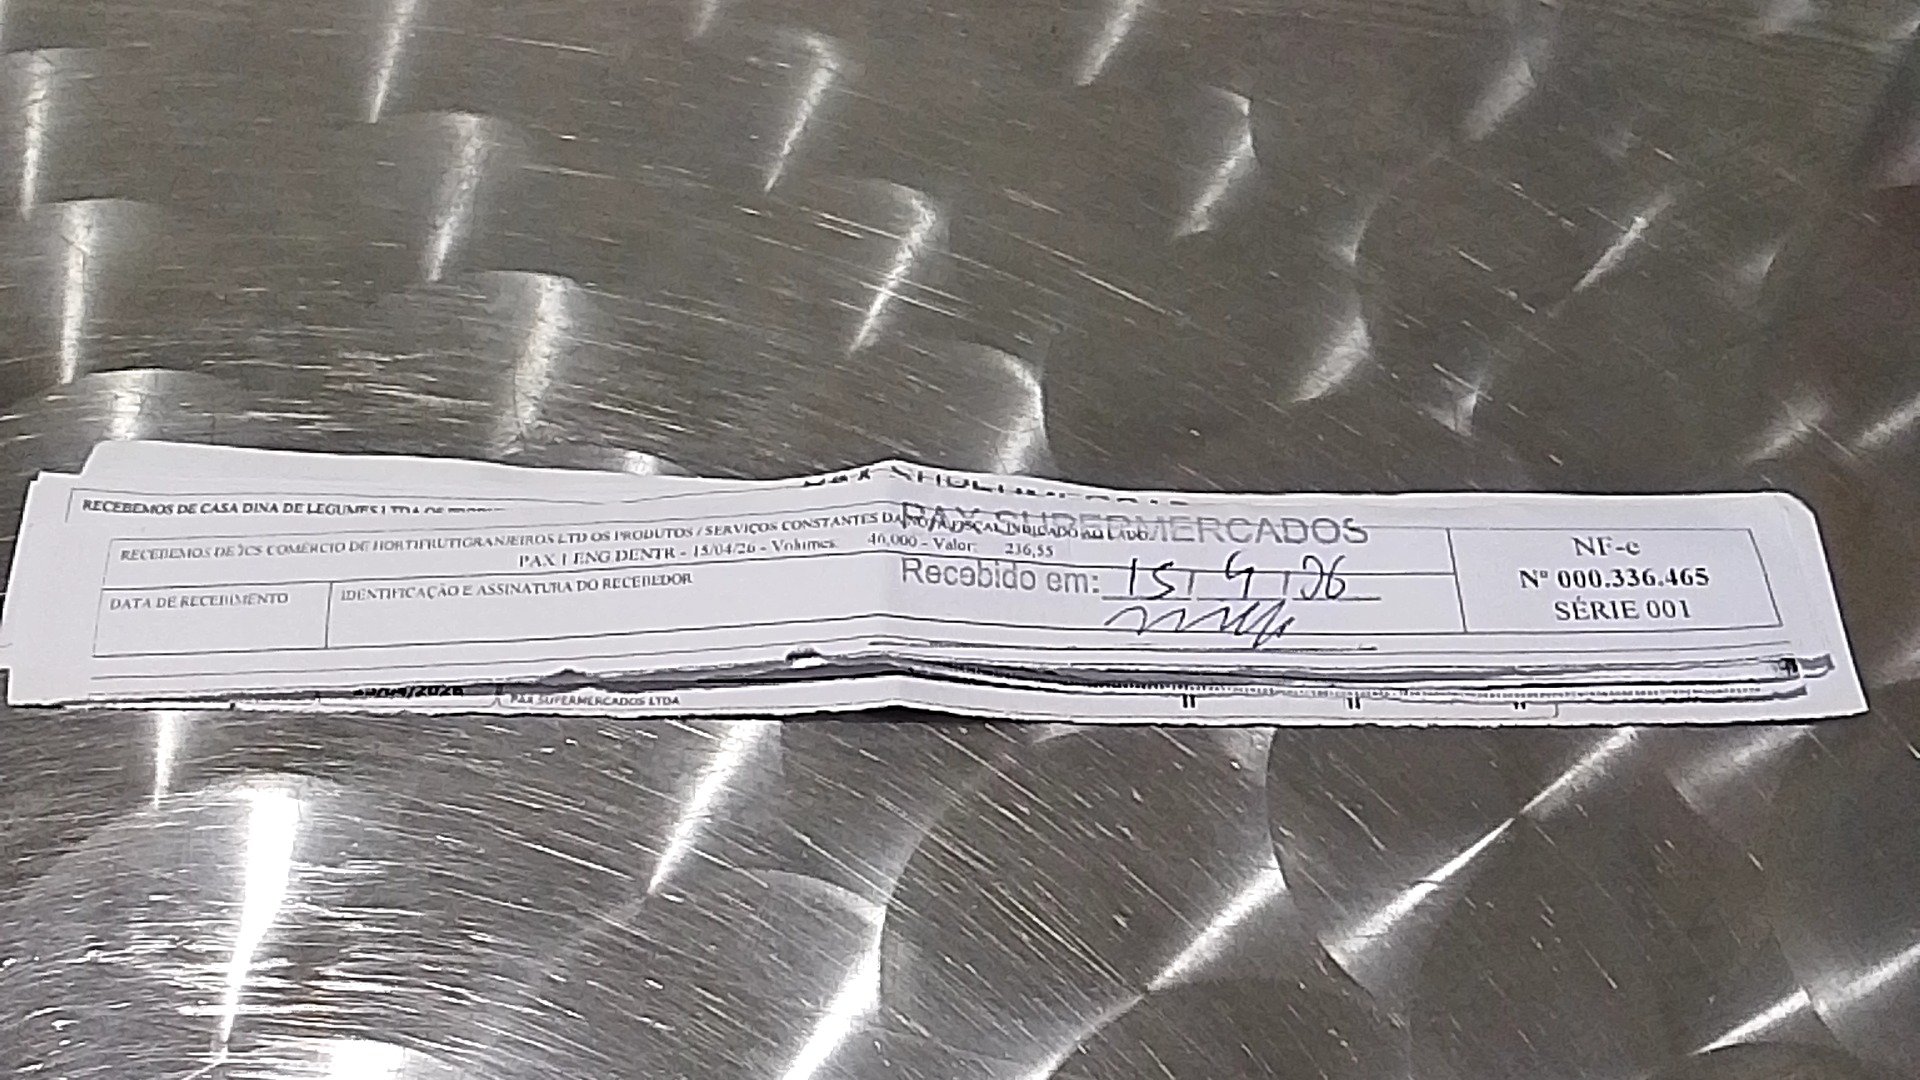 RECEBEMOS DE CASA DINA DE LEGUMES LTDA
PAX SUPERMERCADOS
RECEBEMOS DE JCS COMÉRCIO DE HORTIFRUTIGRANJEIROS LTD OS PRODUTOS / SERVIÇOS CONSTANTES DA NOTA FISCAL INDICADO AO LADO
PAX 1 ENG DENTR - 15/04/26 - Volumes: 40,000 - Valor: 236,55
DATA DE RECEBIMENTO
IDENTIFICAÇÃO E ASSINATURA DO RECEBEDOR
Recebido em: 15/ 4 /26
NF-e
Nº 000.336.465
SÉRIE 001
PAX SUPERMERCADOS LTDA